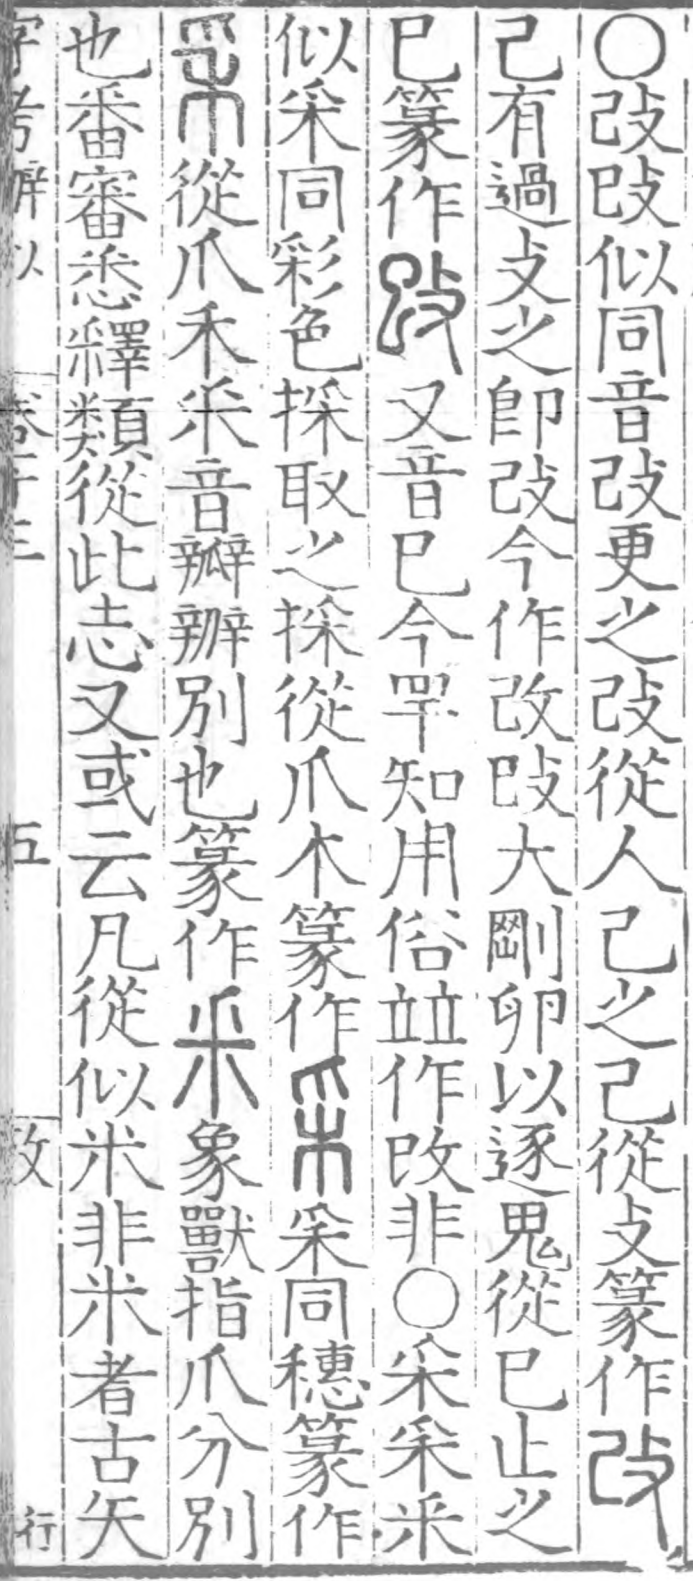 ○攺㱾似同音攺更之攺從人己之己從攴篆作攺
己有過攴之卽攺今作改㱾大剛卯以逐鬼從巳止之
巳篆作㱾又音巳今罕知用俗竝作改非○采𥝩釆
似采同彩色採取之採從爪木篆作采𥝩同穗篆作
𥝩從爪禾釆音瓣辦別也篆作釆象獸指爪分別
也番審悉釋類從此志又或云凡從似米非米者古矢
字考辨似 卷十三 五 攵 行